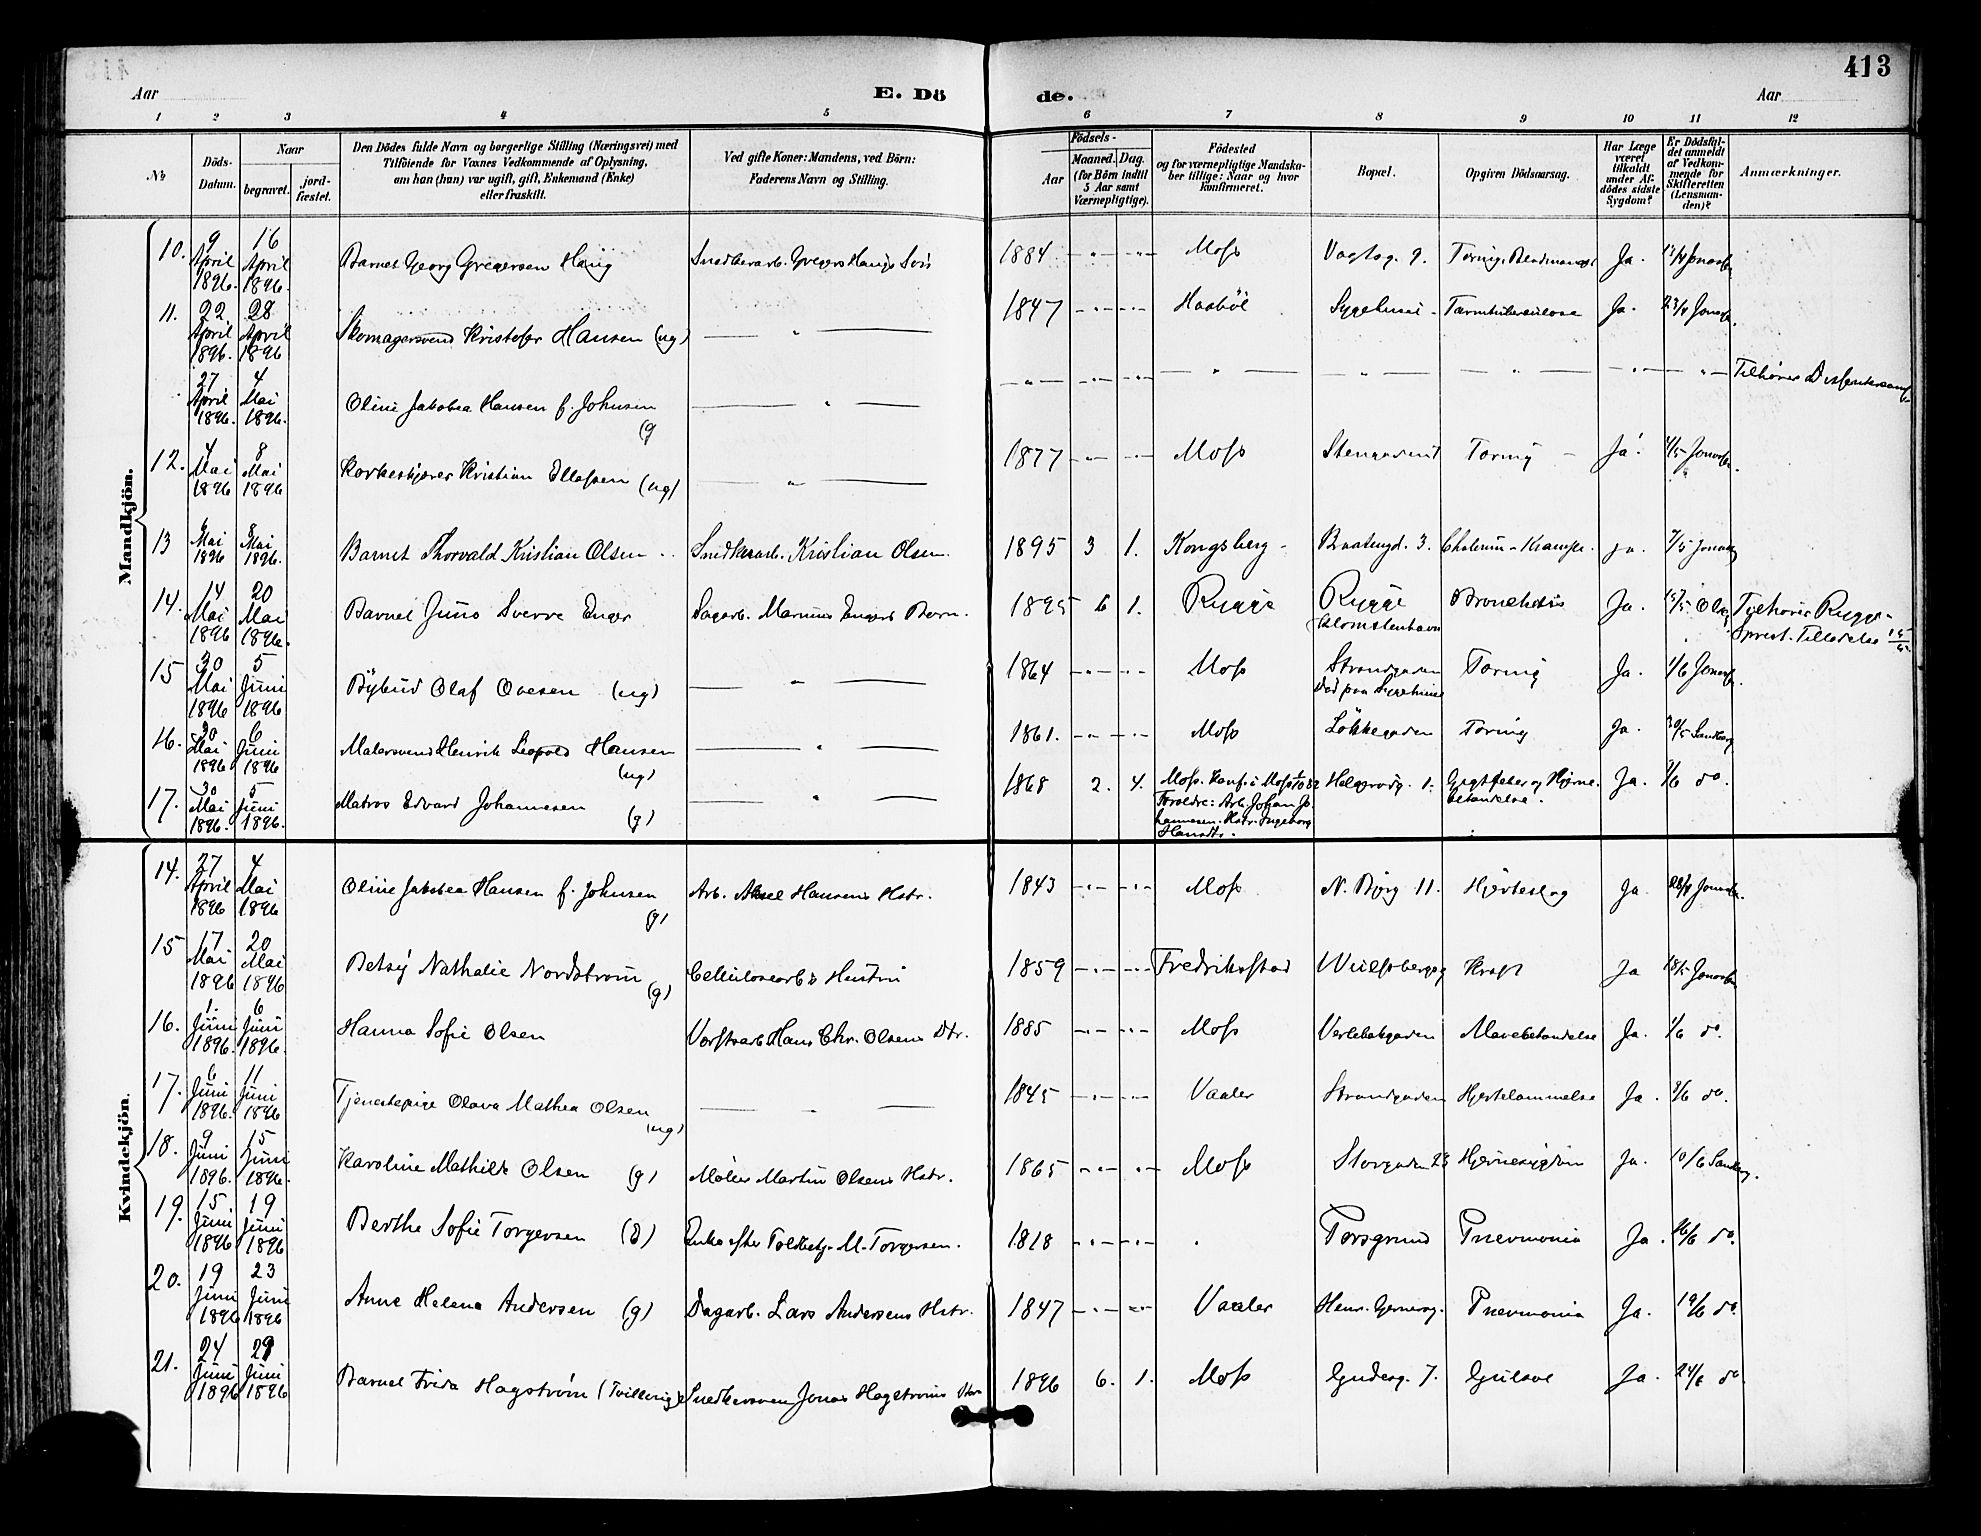 413
Aar
E. Dö
de.
Aar
1 2 3 4 5 6 7 8 9 10 11 12
№
Döds-
Datum.
Naar
begravet.
jord-
fæstet.
Den Dödes fulde Navn og borgerlige Stilling (Næringsvei) med
Tilföiende for Voxnes Vedkommende af Oplysning,
om han (hun) var ugift, gift, Enkemand (Enke)
eller fraskilt.
Ved gifte Koner: Mandens, ved Börn:
Faderens Navn og Stilling.
Födsels-
Aar
Maaned. Dag.
(for Börn indtil
5 Aar samt
Værnepligtige).
Födested
og for værnepligtige Mandska-
ber tillige: Naar og hvor
konfirmeret.
Bopæl.
Opgiven Dödsaarsag.
Har Læge
været
tilkaldt
under Af-
dödes sidste
Sygdom?
Er Dödsfal-
det anmeldt
af Vedkom-
mende for
Skifteretten
(Lensman-
den)?
Anmærkninger.
Mandkjön.
10. 9 April 1896. 16 April 1896. Barnet Georg Gregersen Haug Snedkerarb. Gregers Haugs Sön 1884 Moss Vogtsg. 9. Ja.
11. 22 April 1896. 28 April 1896 Skomagersvend Kristofer Hansen (ug) 1847 Haabøl Sygehuset Tarmtuberculose Ja. 23/4
27 April 1896. 4 Mai 1896. Oline Jakobea Hansen f. Johnsen (g Tilhører
12. 4 Mai 1896 8 Mai 1896 Korkeskjærer Kristian Ellefsen (ug) 1877 Moss Tæring Ja.
13 6 Mai 1896 8 Mai 1896. Barnet Thorvald Kristian Olsen Snedkerarb. Kristian Olsen. 1895 3 1. Kongsberg Krampe. ja. 7/5
14. 14 Mai 1896 20 Mai 1896. Barnet Jens Sverre Enger Dagarb. Marius Engers Barn. 1895 6 1. Rygge Rygge Bronchitis Ja. 15/5
15 30 Mai 1896 5 Juni 1896 Bybud Olaf Ovesen (ug) 1864 Moss Strandgaden Død paa Sygehuset Tæring Ja. 1/6
16. 30 Mai 1896 6 Juni 1896 Malersvend Henrik Leopold Hansen (ug) 1861. Moss Løkkegaden Tæring Ja. 30/5
17. 30 Mai 1896. 5 Juni 1896. Matros Edvard Johannesen (g) 1868 2. 4. Moss. Konf. i Moss
Foreldre: Arb. Johan Jo-
hannesen. Hstr. Ingeborg
Hansdtr. Helgerødg. 1. Gigtfeber og Hjerne-
betændelse. Ja. 1/6 do.
Kvindekjön.
14. 27 April 1896 4 Mai 1896 Oline Jakobea Hansen f. Johnsen (g) Arb. Aksel Hansens Hstr. 1843 Moss N. Bjerg 11. Hjerteslag Ja 28/4
15 17 Mai 1896 20 Mai 1896 Betsy Nathalie Nordstrøm (g) Cellulosearb.s Hustru 1859 Fredrikstad Wulfsbergsg Kræft Ja 18/5
16. 1. Juni 1896. 6 Juni 1896. Hanna Sofie Olsen Værftsarb Hans Chr. Olsens Dtr. 1885 Moss Værlebakgaden Mavebetændelse Ja. 1/6 do.
17. 6 Juni 1896. 11 Juni 1896 Tjenestepige Olava Mathea Olsen (ug) 1845 Vaaler Strandgaden Hjertelammelse Ja. 8/6 do.
18. 9 Juni 1896. 15 Juni 1896. Karoline Mathilde Olsen (g) Møller Martin Olsens Hstr. 1865 Moss Storgaden 23 Hjernesygdom Ja. 10/6
19. 15 Juni 1896 19 Juni 1896 Berthe Sofie Torgersen (E) Enke efter Toldbetj. M. Torgersen. 1818 Porsgrund Pnevmonia Ja. 16/6 do.
20. 19 Juni 1896 23 Juni 1896 Anne Helene Andersen (g) Dagarb. Lars Andersens Hstr. 1847 Vaaler Henr. Gernersg. Pnevmonia Ja. 19/6 do.
21. 24 Juni 1896 29 Juni 1896 Barnet Frida Hagstrøm (Tvilling) Snedkersvend Jonas Hagstrøms 1896 6. 1. Moss Gudesg. 7. Gulsot Ja. 24/6 do.